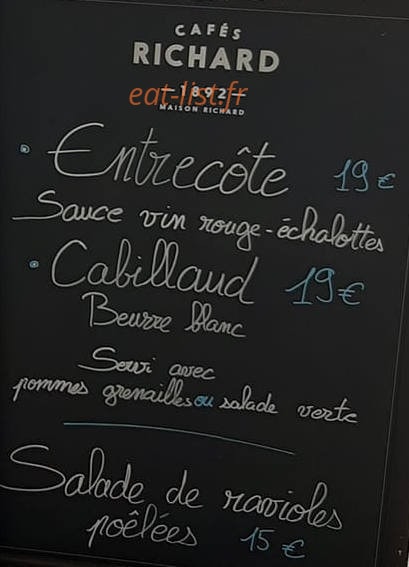 CAFÉS
RICHARD
1892
MAISON RICHARD
eat-list.fr
• Entrecôte 19 €
Sauce vin rouge - échalottes
• Cabillaud 19 €
Beurre blanc
Servi avec
pommes grenailles ou salade verte
Salade de ravioles
poêlées 15 €